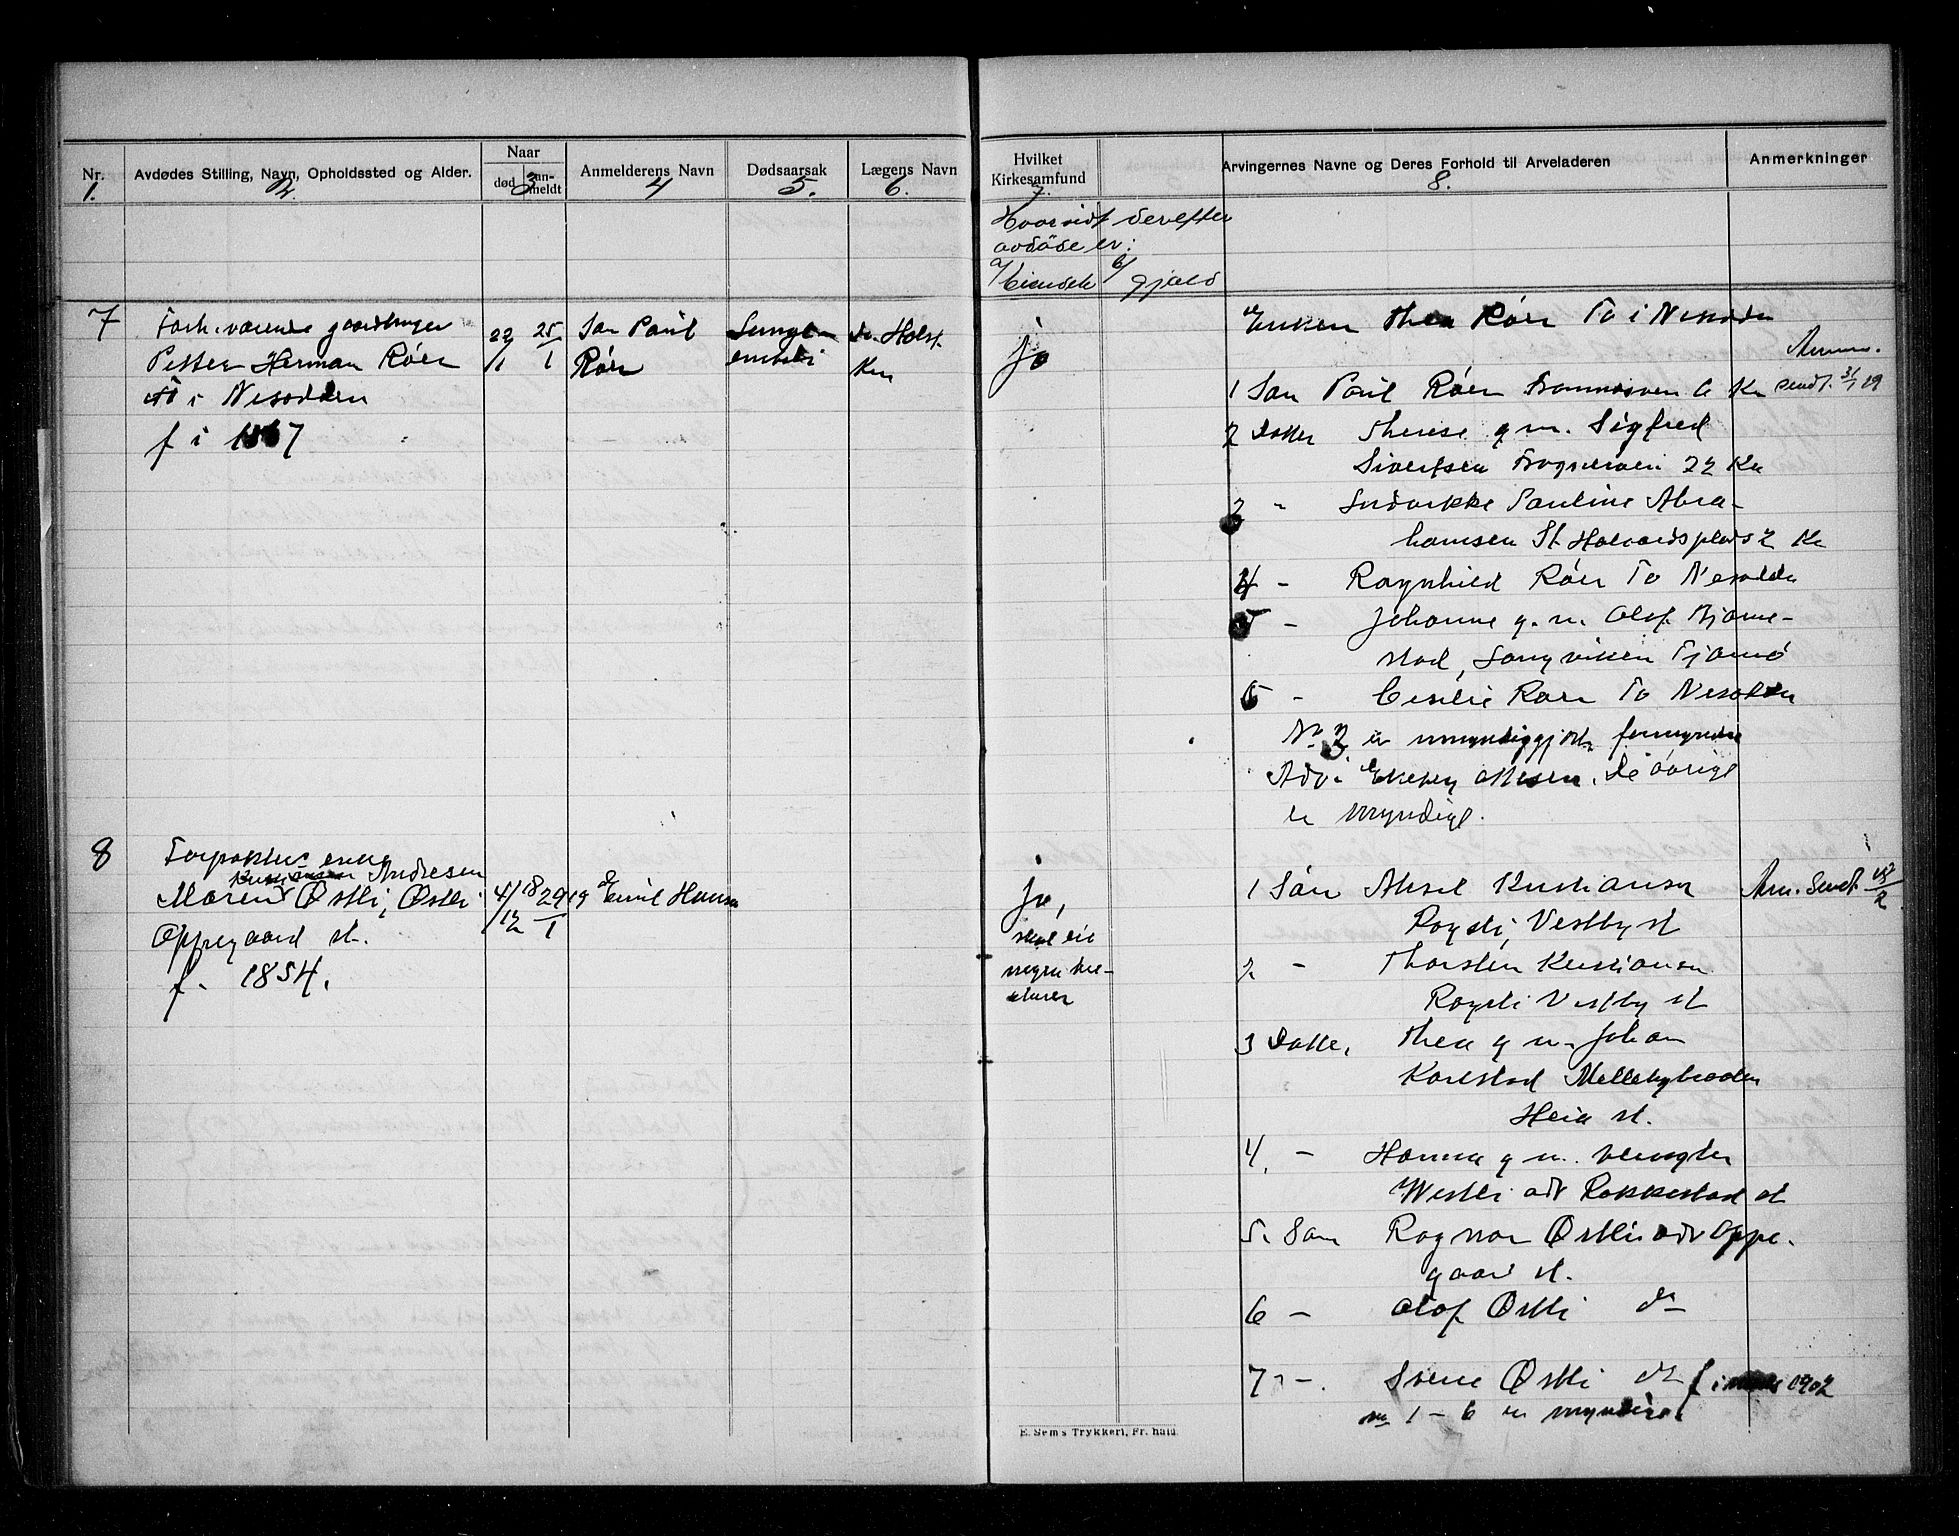 Nr.
1.
Avdødes Stilling, Navn, Ophobldssted og Alder.
2.
Naar
død
an-
meldt
3
Anmelderens Navn
4
Dødsaarsak
5.
Lægens Navn
6.
Hvilket
Kirkesamfund
7.
Arvingernes Navne og Deres Forhold til Arveladeren
8.
Anmerkninger
Hvorvidt derefter
avdöde er:
a/ b/ gjald
7
Forh. værende gaardbruger
Petter Herman Röer
To i Nesodden
f i 1867
22/1
25/1
Søn Paul
Röer
Dr. Holst
Kra
Ja
Enken Thea Röer To i Nesodden
1 Søn Paul Röer 6 Kr
sendt 31/1 19
2 Datter Therese g m. Sigfred
Sivertsen Frognerveien 22 Kra
3 " Pauline Abra-
hamsen St. Halvardsplads 2 Kr
4 - Ragnhild Röer To Nesodden
5 - Johanne g. m. Olaf Bjørne-
stad, Sangviken Tjømö
6 - Cecilie Röer To Nesodden
No 3 er umyndiggjort, formynder
Adv. Ottesen. De övrige
er myndige.
8
Forpakter enke
Andresen
Maren Østli, Østli
Oppegaard st.
f. 1854.
4/12 18
29/1 19
Emil Hansen
Ja,
skal eie
1 Søn Aksel Kristiansen
Røysli, Vestby st
Anm. Sendt
2 - Thorstein Kristiansen
Røysli Vestby st
3 Datter Thea g m. Johan
Karlstad Mellebybraaten
Heia st.
4. - Hanna g m.
Westli adr Rakkestad st
5. Søn Ragnar Østli adr Oppe-
gaard st.
6 - Olaf Østli do
7 - Sverre Østli do f i 1902
no 1 - 6 er myndige
E. Sem's Trykkeri, Fr.hald